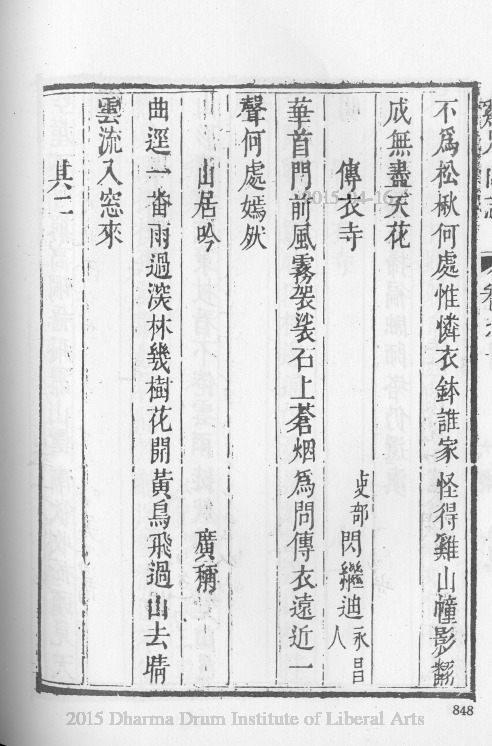 不爲松楸何處惟憐衣鉢誰家怪得雞山幢影翻
成無盡天花
傳衣寺 吏部閃繼迪永昌人
華首門前風霧袈裟石上蒼烟爲問傳衣遠近一
聲何處嫣然
山居吟 廣稱
曲逕一番雨過深林幾樹花開黃鳥飛過山去晴
雲流入窓來
其二
848
2015 Dharma Drum Institute of Liberal Arts